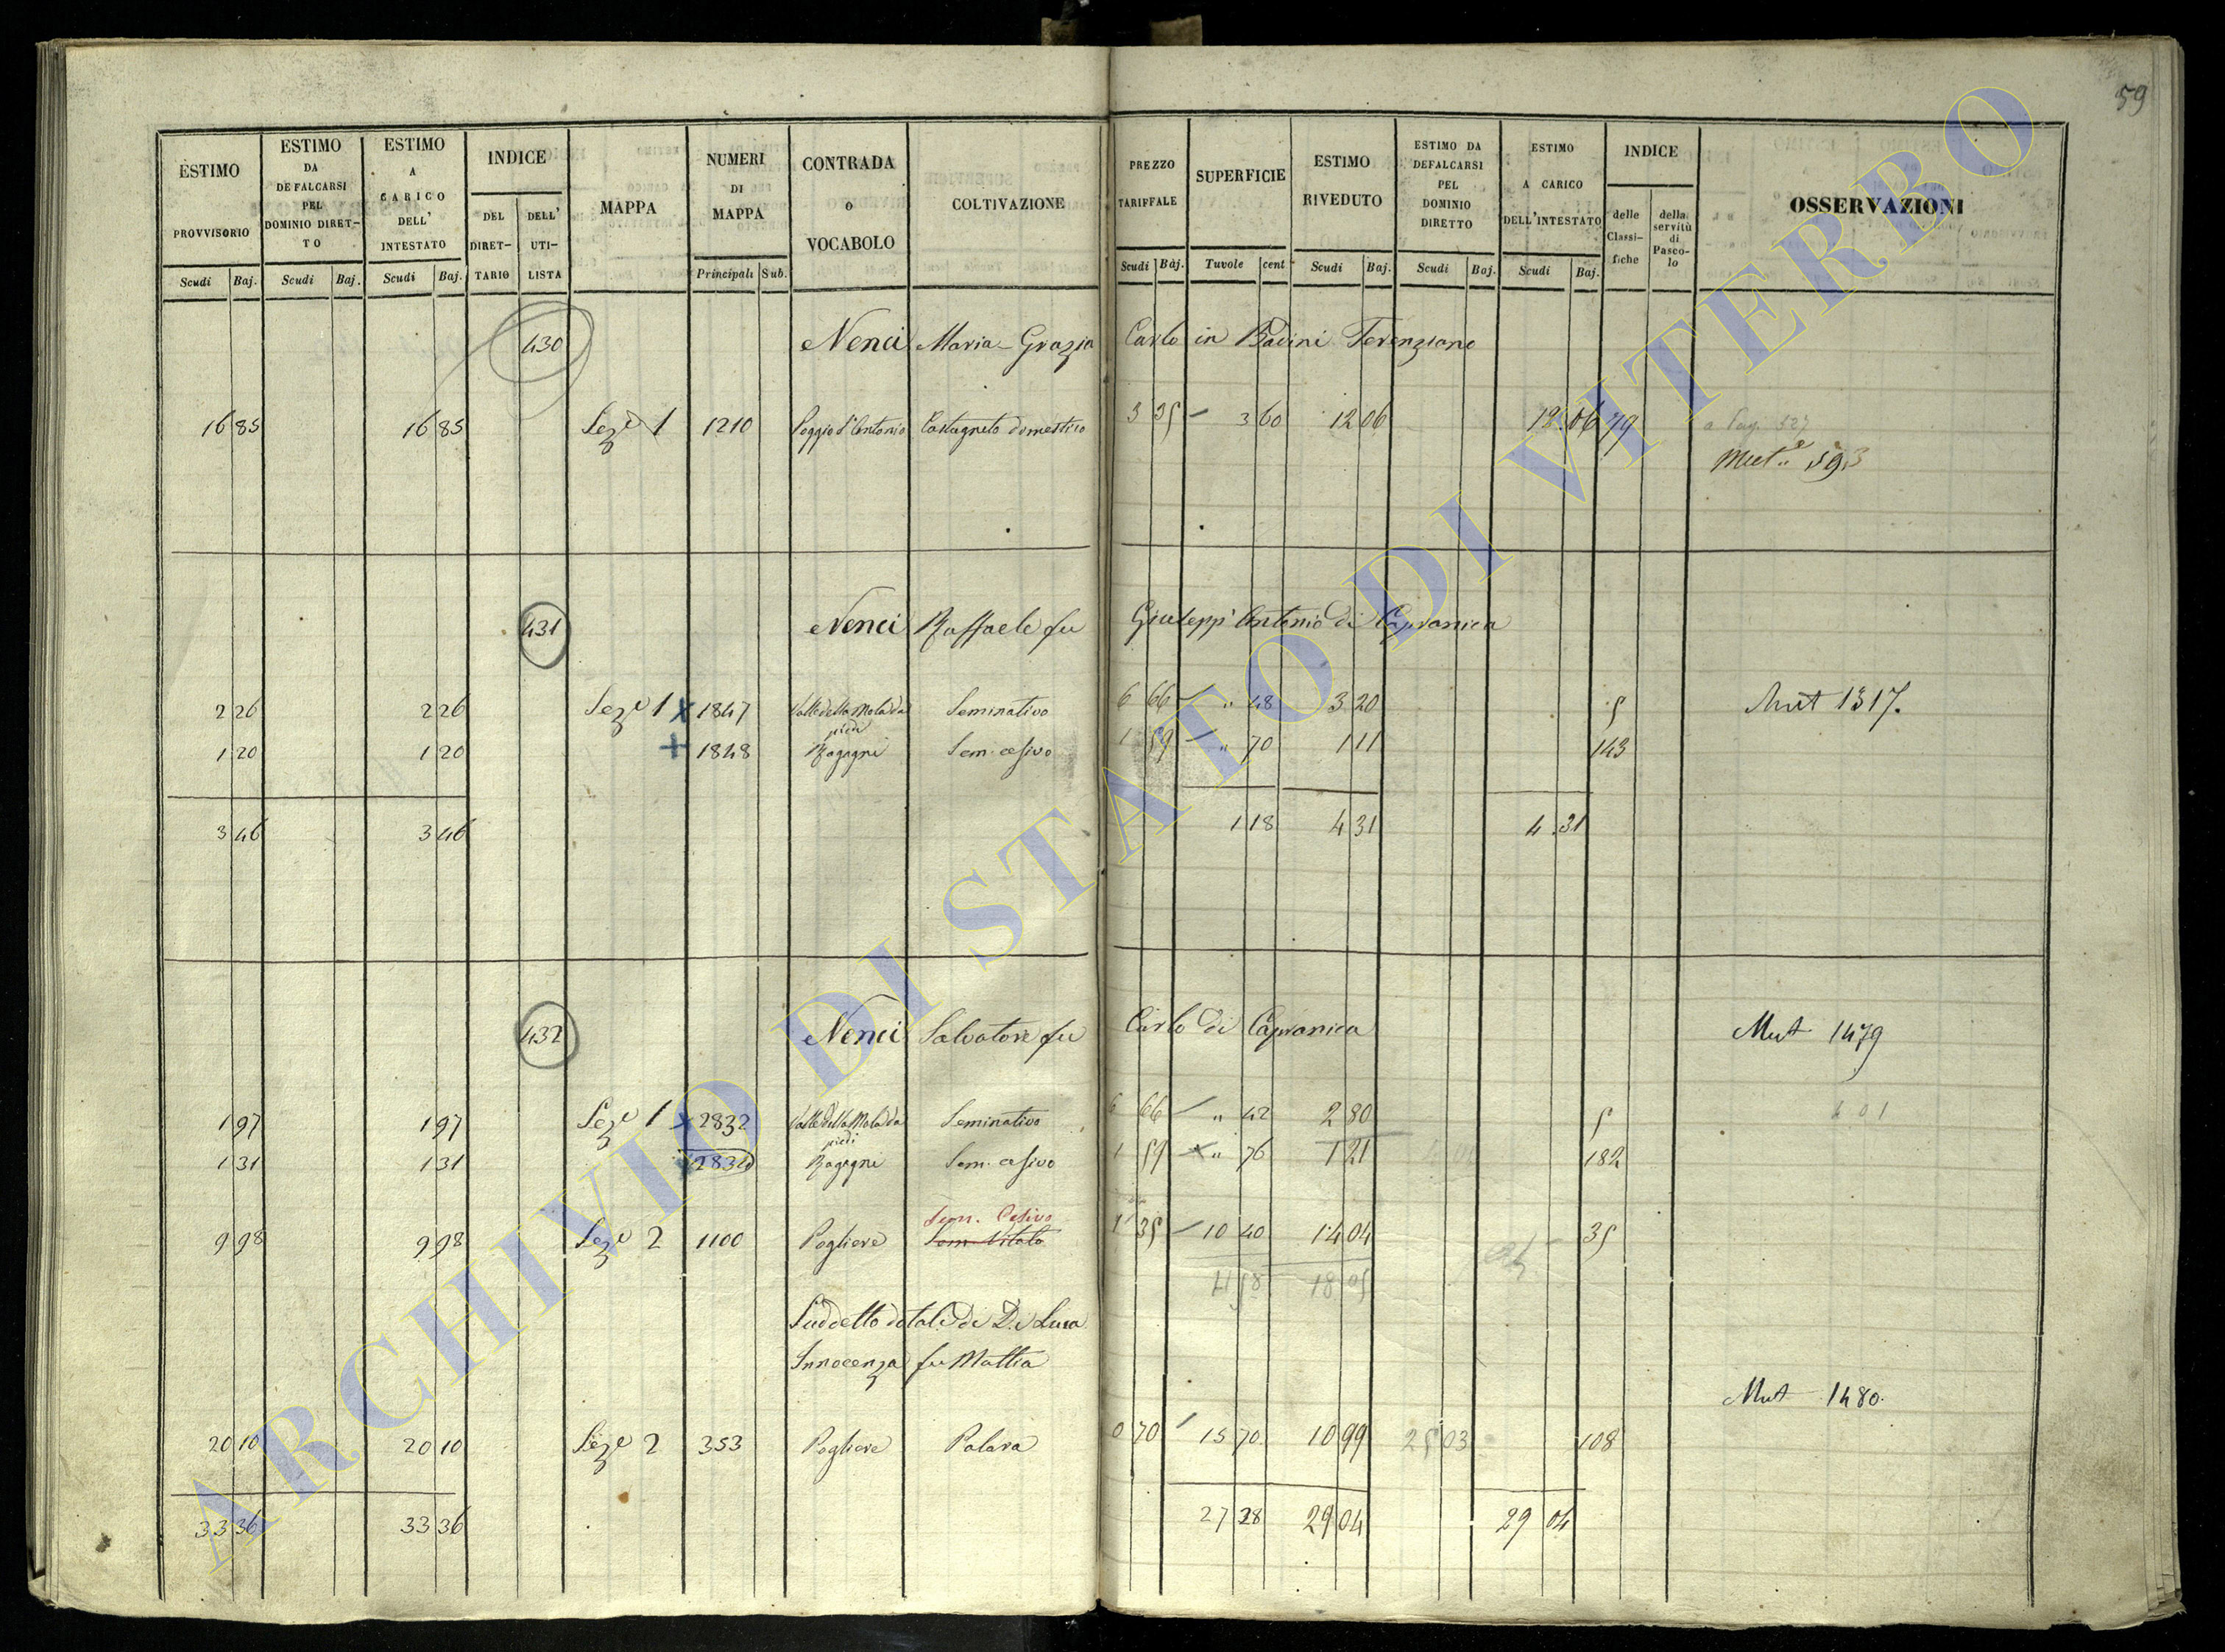 59
ESTIMO PROVVISORIO
ESTIMO DA DEFALCARSI PEL DOMINIO DIRETTO
ESTIMO A CARICO DELL' INTESTATO
INDICE
DEL DIRETTARIO
DELL' UTILISTA
MAPPA
NUMERI DI MAPPA
CONTRADA o VOCABOLO
COLTIVAZIONE
PREZZO TARIFFALE
SUPERFICIE
ESTIMO RIVEDUTO
ESTIMO DA DEFALCARSI PEL DOMINIO DIRETTO
ESTIMO A CARICO DELL'INTESTATO
INDICE
delle Classifiche
della servitù di Pascolo
OSSERVAZIONI
Scudi Baj. Scudi Baj. Scudi Baj. Principali Sub. Scudi Baj. Tavole cent Scudi Baj. Scudi Baj. Scudi Baj.
430 Nenci Maria Grazia Carlo in Badini Terenziano
16 85 16 85 Seze 1 1210 Poggio d'Antonio Castagneto domestico 3 35 3 60 12 06 12 06 79 a Pag. 527
Mut.e 593
431 Nenci Raffaele fu Giuseppe Antonio di Capranica
2 26 2 26 Seze 1 x 1847 Valle della Mola da piedi Seminativo 6 66 " 48 3 20 5 Mut 1317.
1 20 1 20 + 1848 Ragogni Sem. cesivo 1 59 " 70 1 11 143
3 46 3 46 1 18 4 31 4 31
432 Nenci Salvatore fu Carlo di Capranica Mut 1479
1 97 1 97 Seze 1 x 2832 Valle della Mola da piedi Seminativo 6 66 " 42 2 80 5 401
1 31 1 31 2834 Ragogni Sem. cesivo 1 59 x " 76 1 21 182
Sem. Cesivo
9 98 9 98 Seze 2 1100 Pogliere Sem Vitato 1 35 10 40 14 04 35
11 58 18 05
Suddetto dotale di De Luca
Innocenza fu Mattia
Mut 1480.
20 10 20 10 Seze 2 353 Pogliere Palara 0 70 15 70 10 99 25 03 108
33 36 33 36 27 28 29 04 29 04
ARCHIVIO DI STATO DI VITERBO